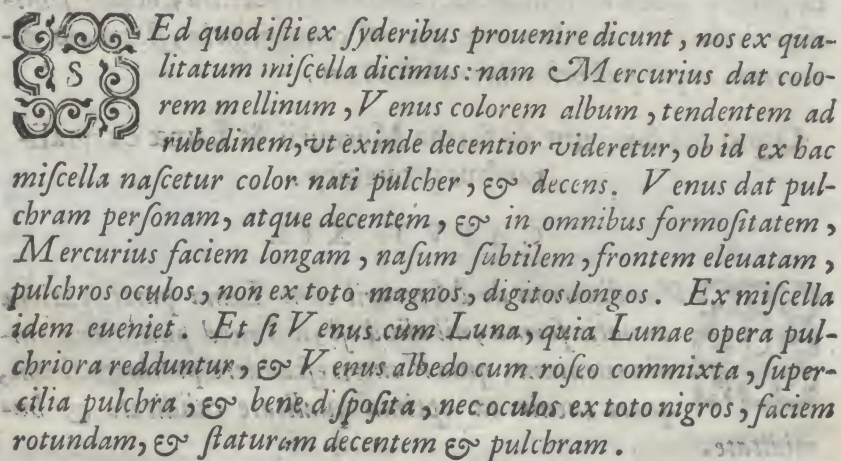 SEd quod iſti ex ſyderibus prouenire dicunt, nos ex qua-
litatum miſcella dicimus: nam Mercurius dat colo-
rem mellinum, Venus colorem album, tendentem ad
rubedinem, vt exinde decentior videretur, ob id ex hac
miſcella naſcetur color nati pulcher, & decens. Venus dat pul-
chram perſonam, atque decentem, & in omnibus formoſitatem,
Mercurius faciem longam, naſum ſubtilem, frontem eleuatam,
pulchros oculos, non ex toto magnos, digitos longos. Ex miſcella
idem eueniet. Et ſi Venus cum Luna, quia Lunae opera pul-
chriora redduntur, & Venus albedo cum roſeo commixta, ſuper-
cilia pulchra, & bene diſpoſita, nec oculos ex toto nigros, faciem
rotundam, & ſtaturam decentem & pulchram.